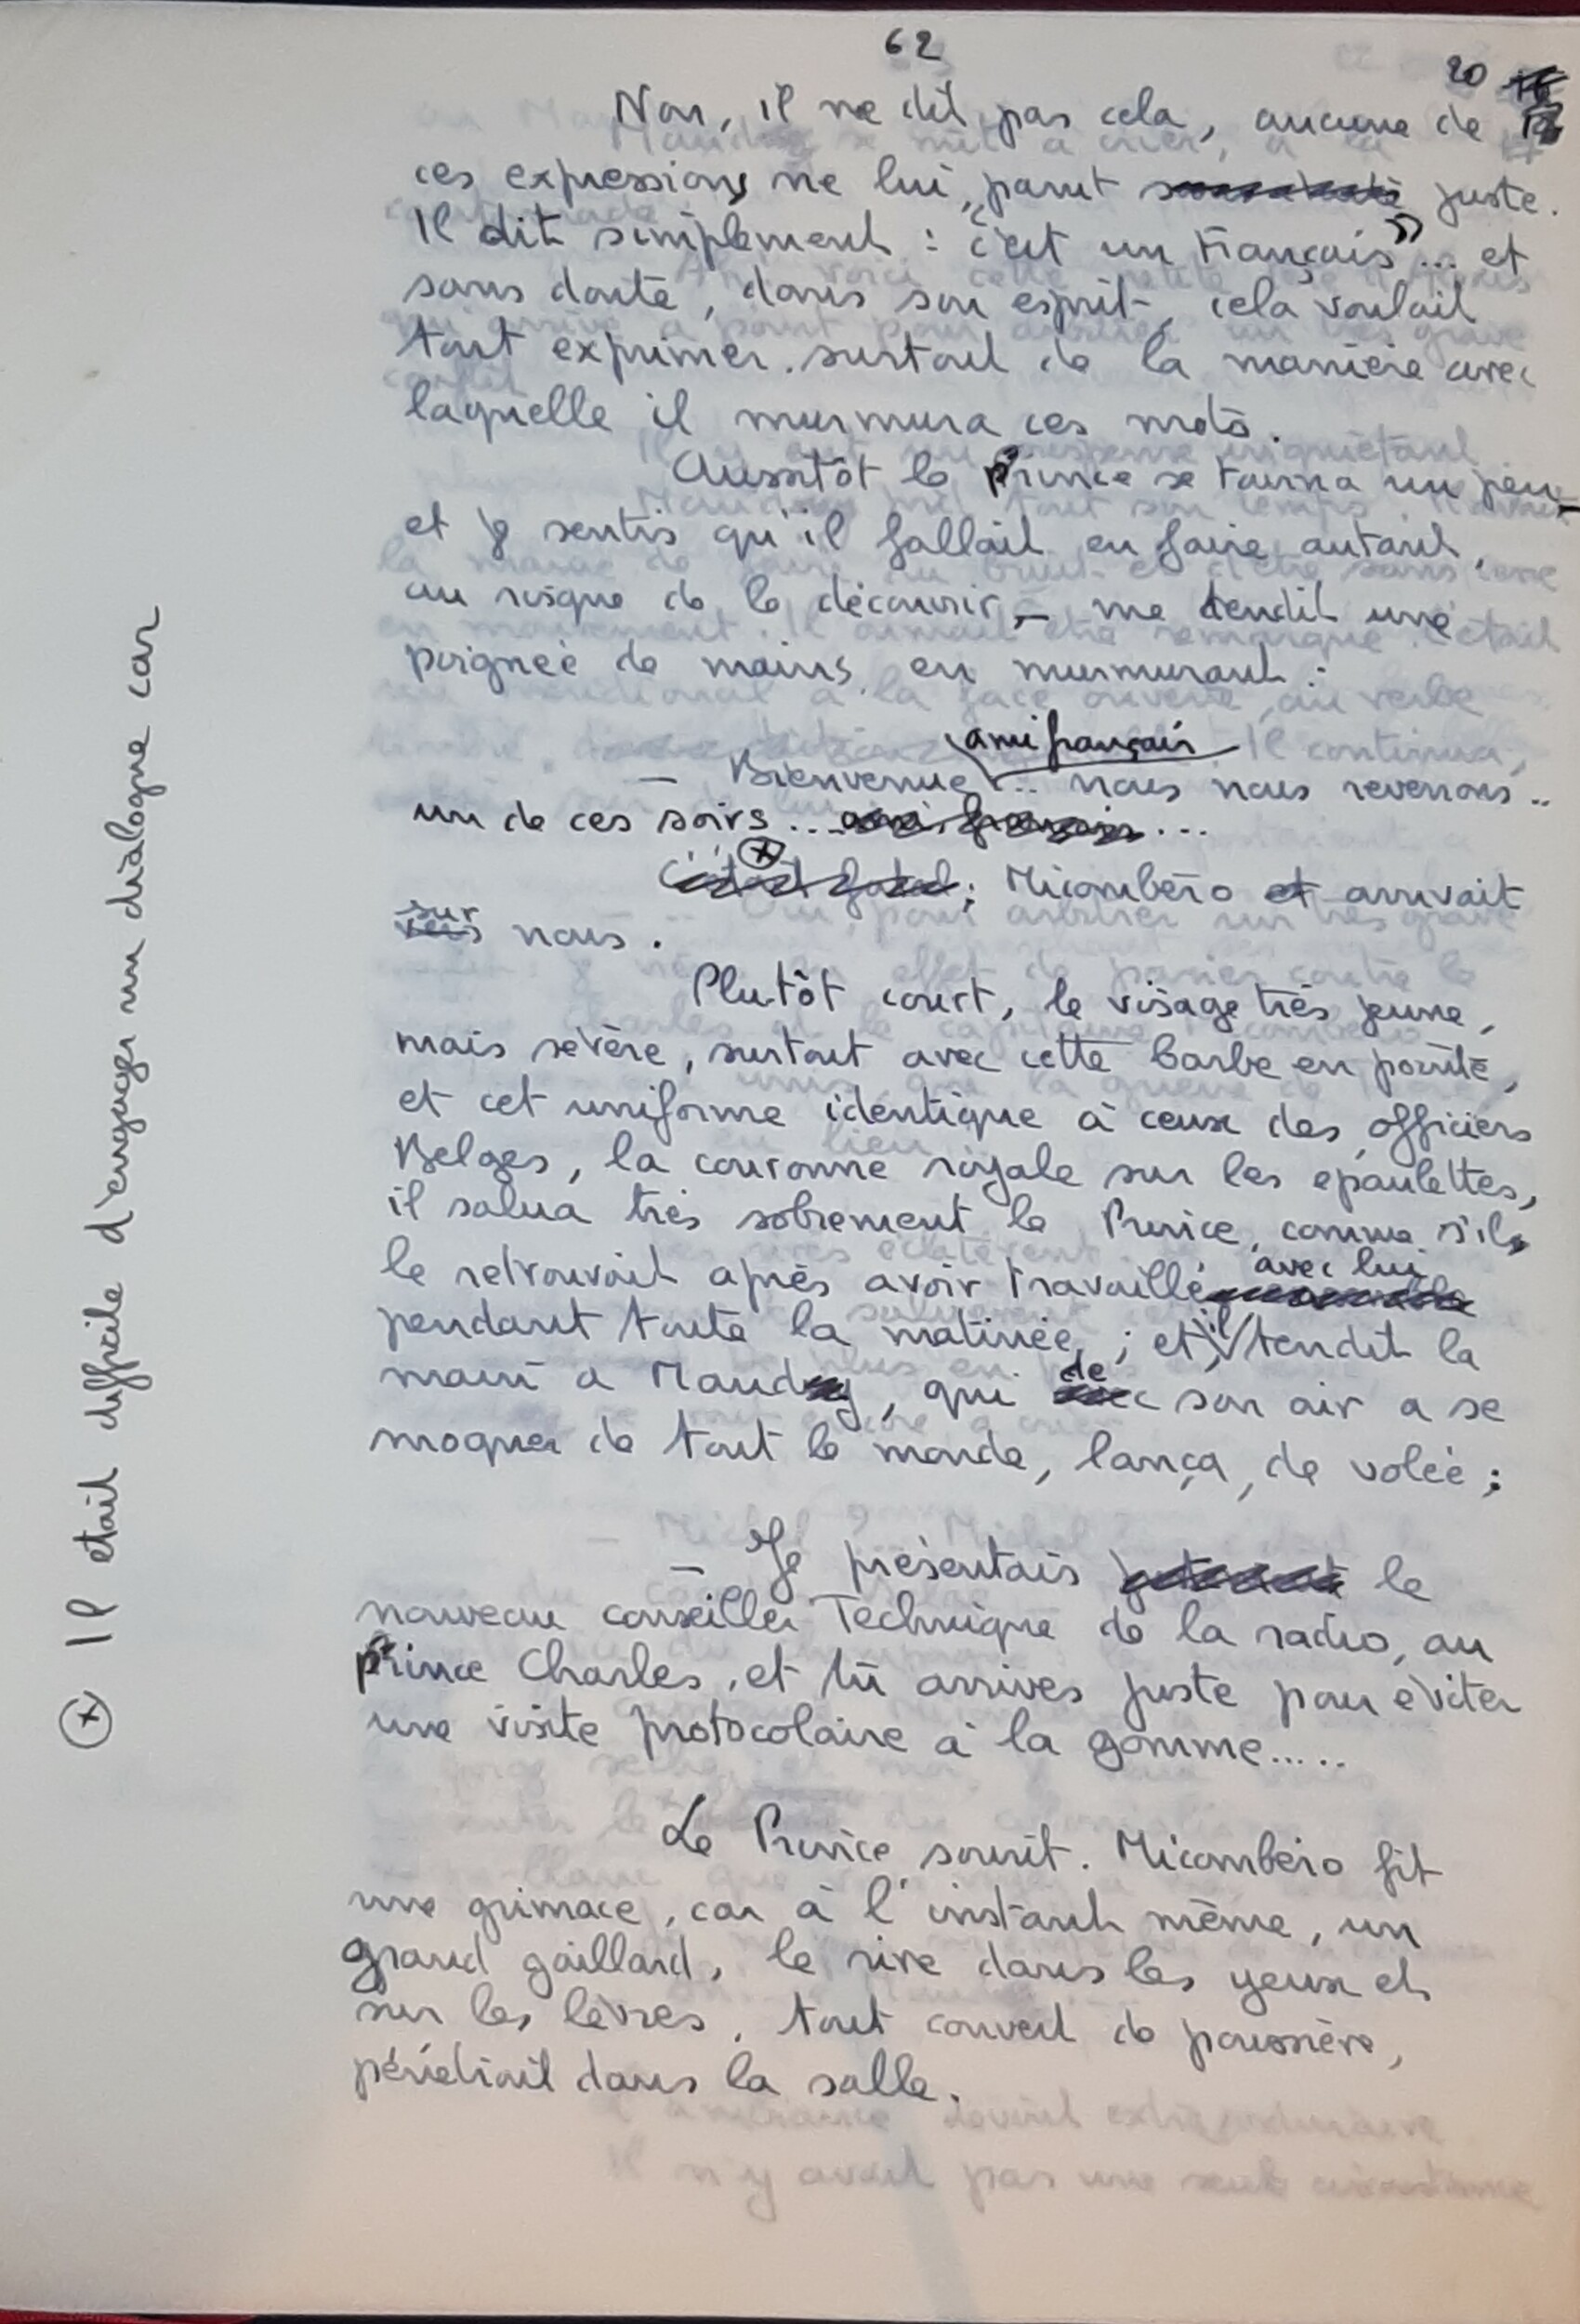 62
20
Non, il ne dit pas cela, aucune de
ces expressions ne lui parut juste.
Il dit simplement : "c'est un Français"... et
sans doute, dans son esprit, cela voulait
tout exprimer. surtout de la manière avec
laquelle il murmura ces mots.
Aussitôt le Prince se tourna un peu –
et je sentis qu'il fallait en faire autant,
au risque de le découvrir, – me tendit une
poignée de mains en murmurant :
ami français
– Bienvenue... nous nous reverrons..
un de ces soirs... ami français...
(x)
C'était fatal; Micombéro et arrivait
sur
vers nous.
Plutôt court, le visage très jeune,
mais sévère, surtout avec cette barbe en pointe,
et cet uniforme identique à ceux des officiers
Belges, la couronne royale sur les epaulettes,
il salua très sobrement le Prince, comme s'il
avec lui
le retrouvait après avoir travaillé
il
pendant toute la matinée, ; et, tendit la
de
main a Maudry, qui avec son air a se
moquer de tout le monde, lança, de volée ;
– Je présentais justement le
nouveau conseiller Technique de la radio, au
prince Charles, et tu arrives juste pour éviter
une visite protocolaire à la gomme.....
Le Prince sourit. Micombéro fit
une grimace, car à l'instant même, un
grand gaillard, le rire dans les yeux et
sur les lèvres, tout couvert de poussière,
pénétrait dans la salle.
(x) Il etait difficile d'engager un dialogue car